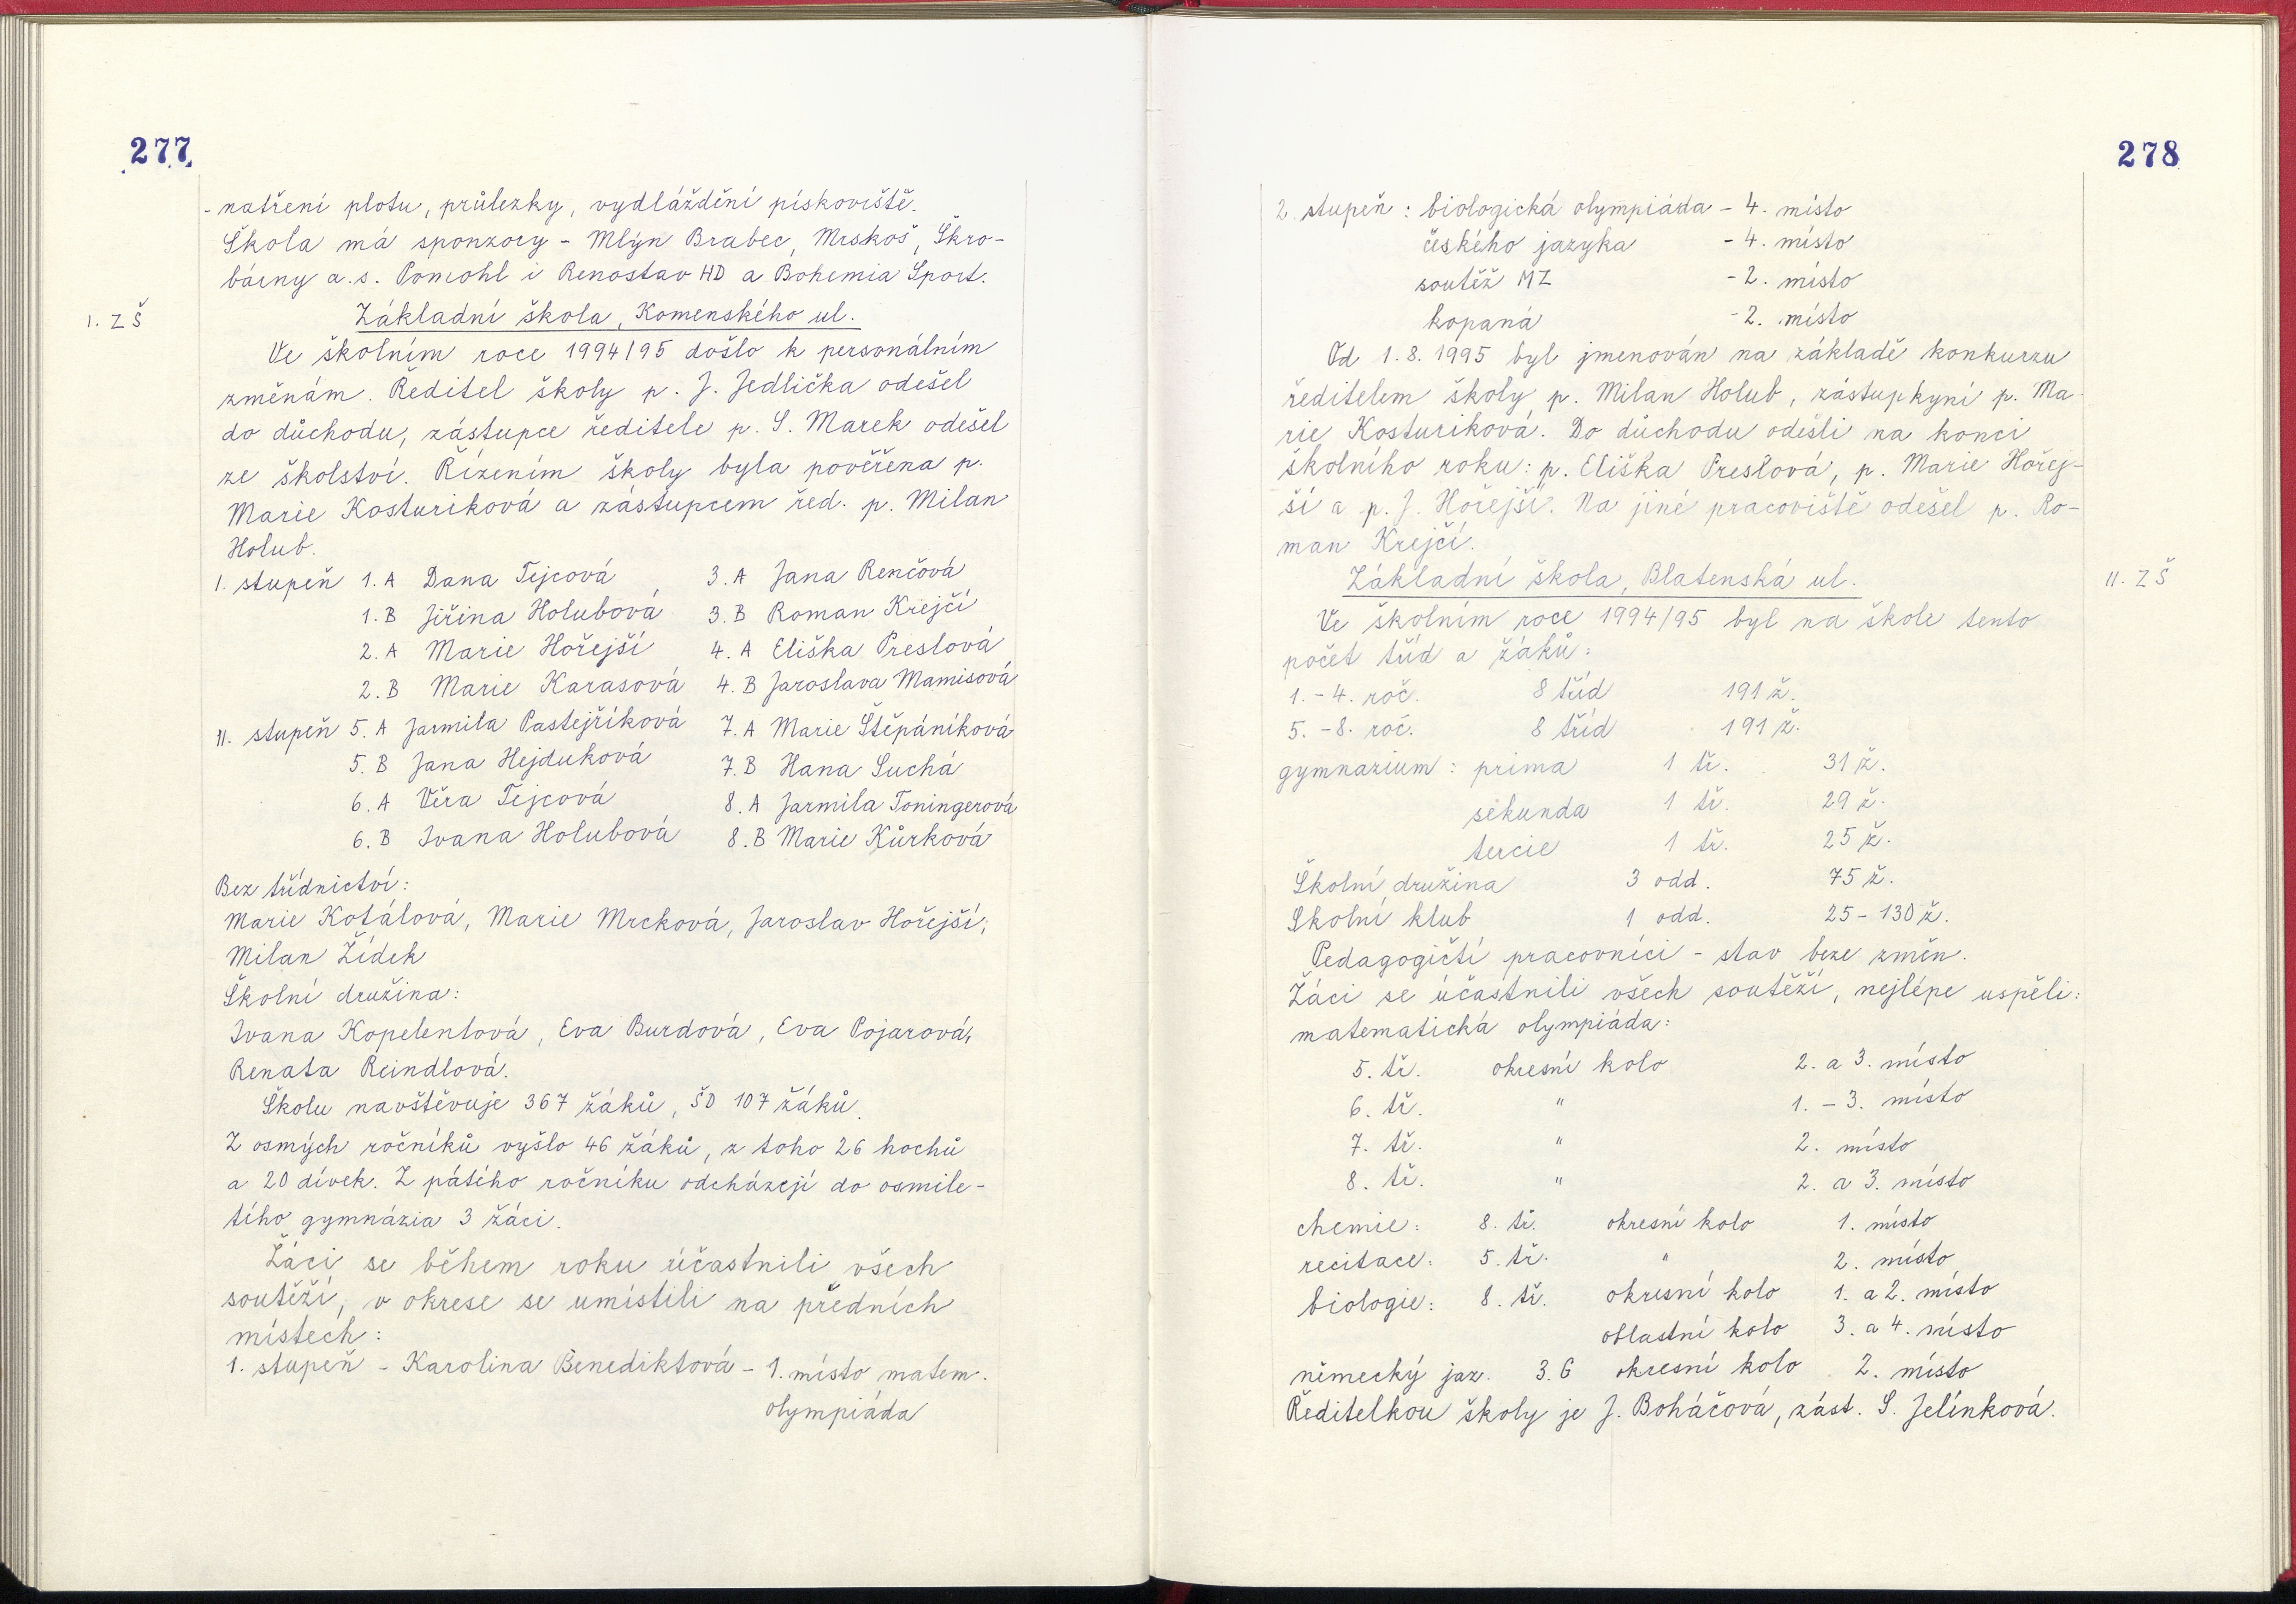 277
- natření plotu, průlezky, vydláždění pískoviště.
Škola má sponzory - Mlýn Brabec, Mrskoš, Škro-
bárny a.s. Pomohl i Renostav HD a Bohemia Sport.
I. ZŠ
Základní škola, Komenského ul.
Ve školním roce 1994/95 došlo k personálním
změnám. Ředitel školy p. J. Jedlička odešel
do důchodu, zástupce ředitele p. S. Marek odešel
ze školství. Řízením školy byla pověřena p.
Marie Kosturiková a zástupcem řed. p. Milan
Holub.
I. stupeň 1. A Dana Tejcová 3. A Jana Renčová
1. B Jiřina Holubová 3. B Roman Krejčí
2. A Marie Hořejší 4. A Eliška Preslová
2. B Marie Karasová 4. B Jaroslava Mamisová
II. stupeň 5. A Jarmila Pastejříková 7. A Marie Štěpáníková
5. B Jana Hejduková 7. B Hana Suchá
6. A Věra Tejcová 8. A Jarmila Toningerová
6. B Ivana Holubová 8. B Marie Kůrková
Bez třídnictví:
Marie Kotálová, Marie Mrcková, Jaroslav Hořejší,
Milan Žídek
Školní družina:
Ivana Kopelentová, Eva Burdová, Eva Pojarová,
Renata Reindlová.
Školu navštěvuje 367 žáků, ŠD 107 žáků.
Z osmých ročníků vyšlo 46 žáků, z toho 26 hochů
a 20 dívek. Z pátého ročníku odcházejí do osmile-
tího gymnázia 3 žáci.
Žáci se během roku účastnili všech
soutěží, v okrese se umístili na předních
místech:
1. stupeň - Karolina Benediktová - 1. místo matem.
olympiáda
278
2. stupeň : biologická olympiáda - 4. místo
českého jazyka - 4. místo
soutěž MZ - 2. místo
kopaná - 2. místo
Od 1. 8. 1995 byl jmenován na základě konkurzu
ředitelem školy p. Milan Holub, zástupkyní p. Ma-
rie Kosturiková. Do důchodu odešli na konci
školního roku: p. Eliška Preslová, p. Marie Hořej-
ší a p. J. Hořejší. Na jiné pracoviště odešel p. Ro-
man Krejčí.
Základní škola, Blatenská ul.
II. ZŠ
Ve školním roce 1994/95 byl na škole tento
počet tříd a žáků:
1. - 4. roč. 8 tříd 191 ž.
5. - 8. roč. 8 tříd 191 ž.
gymnazium : prima 1 tř. 31 ž.
sekunda 1 tř. 29 ž.
tercie 1 tř. 25 ž.
Školní družina 3 odd. 75 ž.
Školní klub 1 odd. 25 - 130 ž.
Pedagogičtí pracovníci - stav beze změn.
Žáci se účastnili všech soutěží, nejlépe uspěli:
matematická olympiáda:
5. tř. okresní kolo 2. a 3. místo
6. tř. " 1. - 3. místo
7. tř. " 2. místo
8. tř. " 2. a 3. místo
chemie: 8. tř. okresní kolo 1. místo
recitace: 5. tř. " 2. místo
biologie: 8. tř. okresní kolo 1. a 2. místo
oblastní kolo 3. a 4. místo
německý jaz. 3. G okresní kolo 2. místo
Ředitelkou školy je J. Boháčová, zást. S. Jelínková.